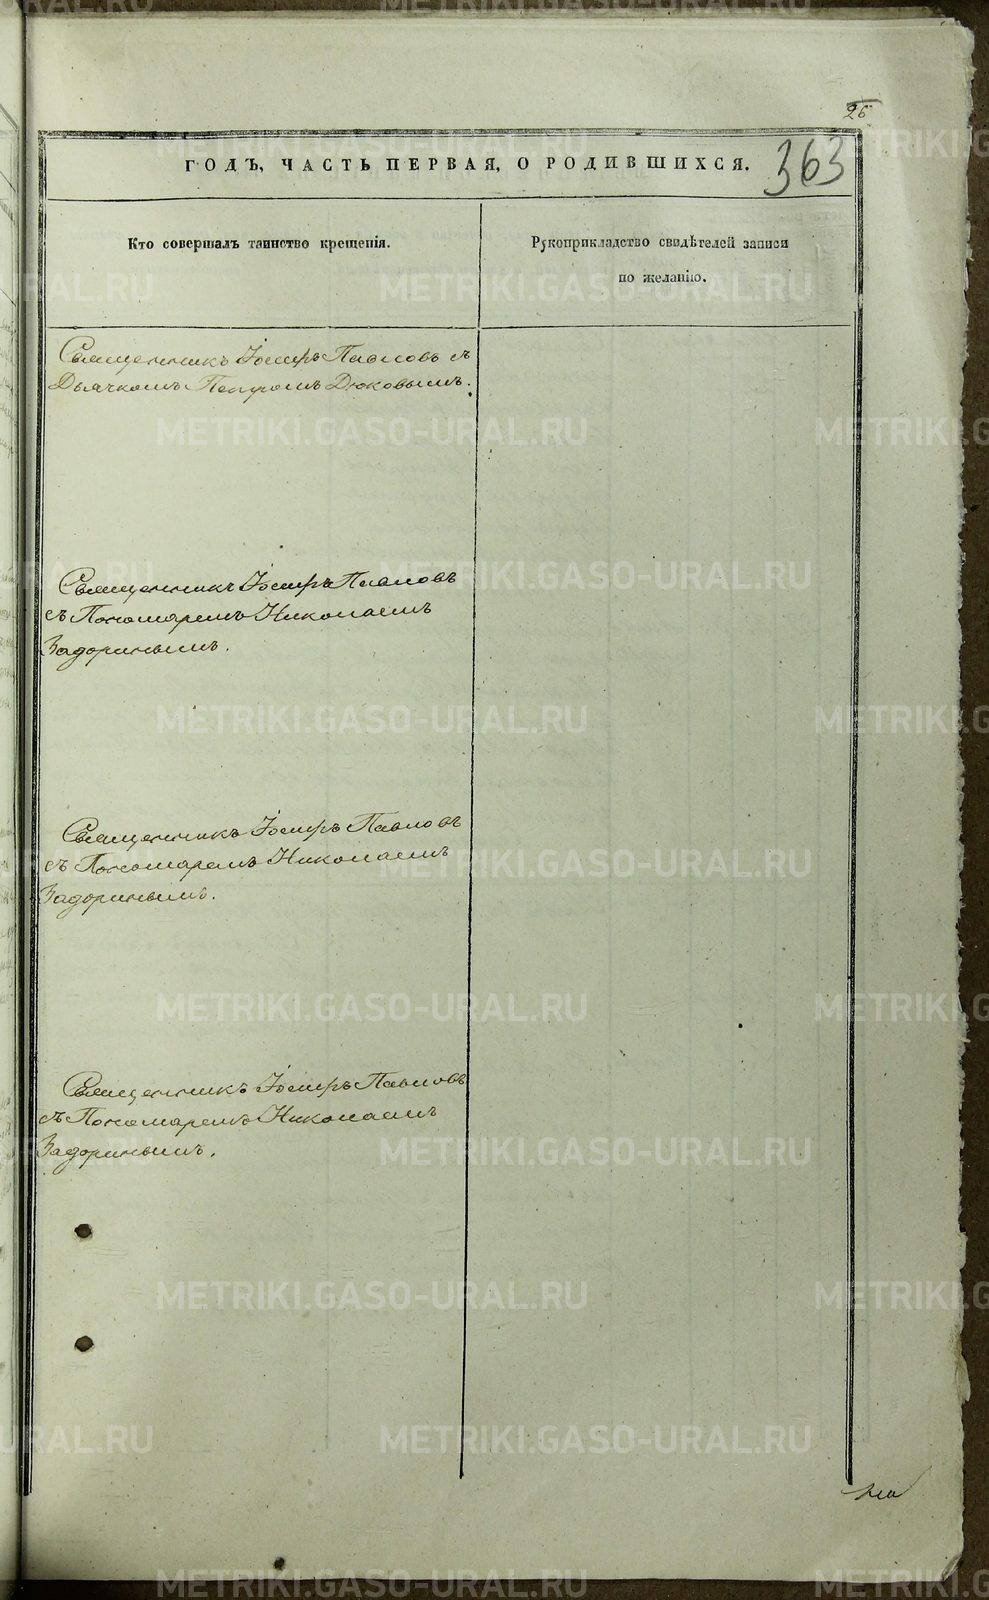 26
ГОДЪ, ЧАСТЬ ПЕРВАЯ, О РОДИВШИХСЯ.
363
Кто совершалъ таинство крещенія.
Рукоприкладство свидѣтелей записи
по желанію.
Священникъ Іосифъ Павловъ съ
Дьячкомъ Петромъ Дюковымъ.
Священникъ Іосифъ Павловъ
съ Пономаремъ Николаемъ
Задоринымъ.
Священникъ Іосифъ Павловъ
съ Пономаремъ Николаемъ
Задоринымъ.
Священникъ Іосифъ Павловъ
съ Пономаремъ Николаемъ
Задоринымъ.
METRIKI.GASO-URAL.RU